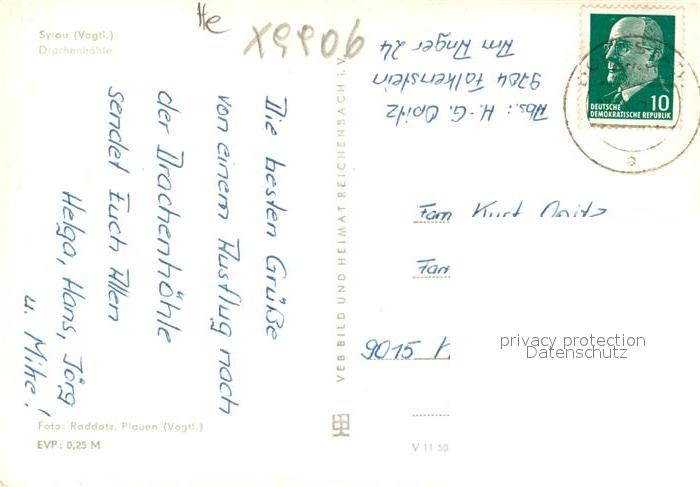 Syrau (Vogtl.)
Drachenhöhle
He
X99906
Die besten Grüße
von einem Ausflug nach
der Drachenhöhle
sendet Euch Allen
Helga, Hans, Jörg
u. Mike!
Foto: Raddatz, Plauen (Vogtl.)
EVP: 0,25 M
VEB BILD UND HEIMAT REICHENBACH I. V.
V 11 50
Abs.: H.-G. Opitz
9704 Falkenstein
Am Anger 24
DEUTSCHE
DEMOKRATISCHE REPUBLIK
10
a
Fam Kurt Opitz
Fam
9015
privacy protection
Datenschutz